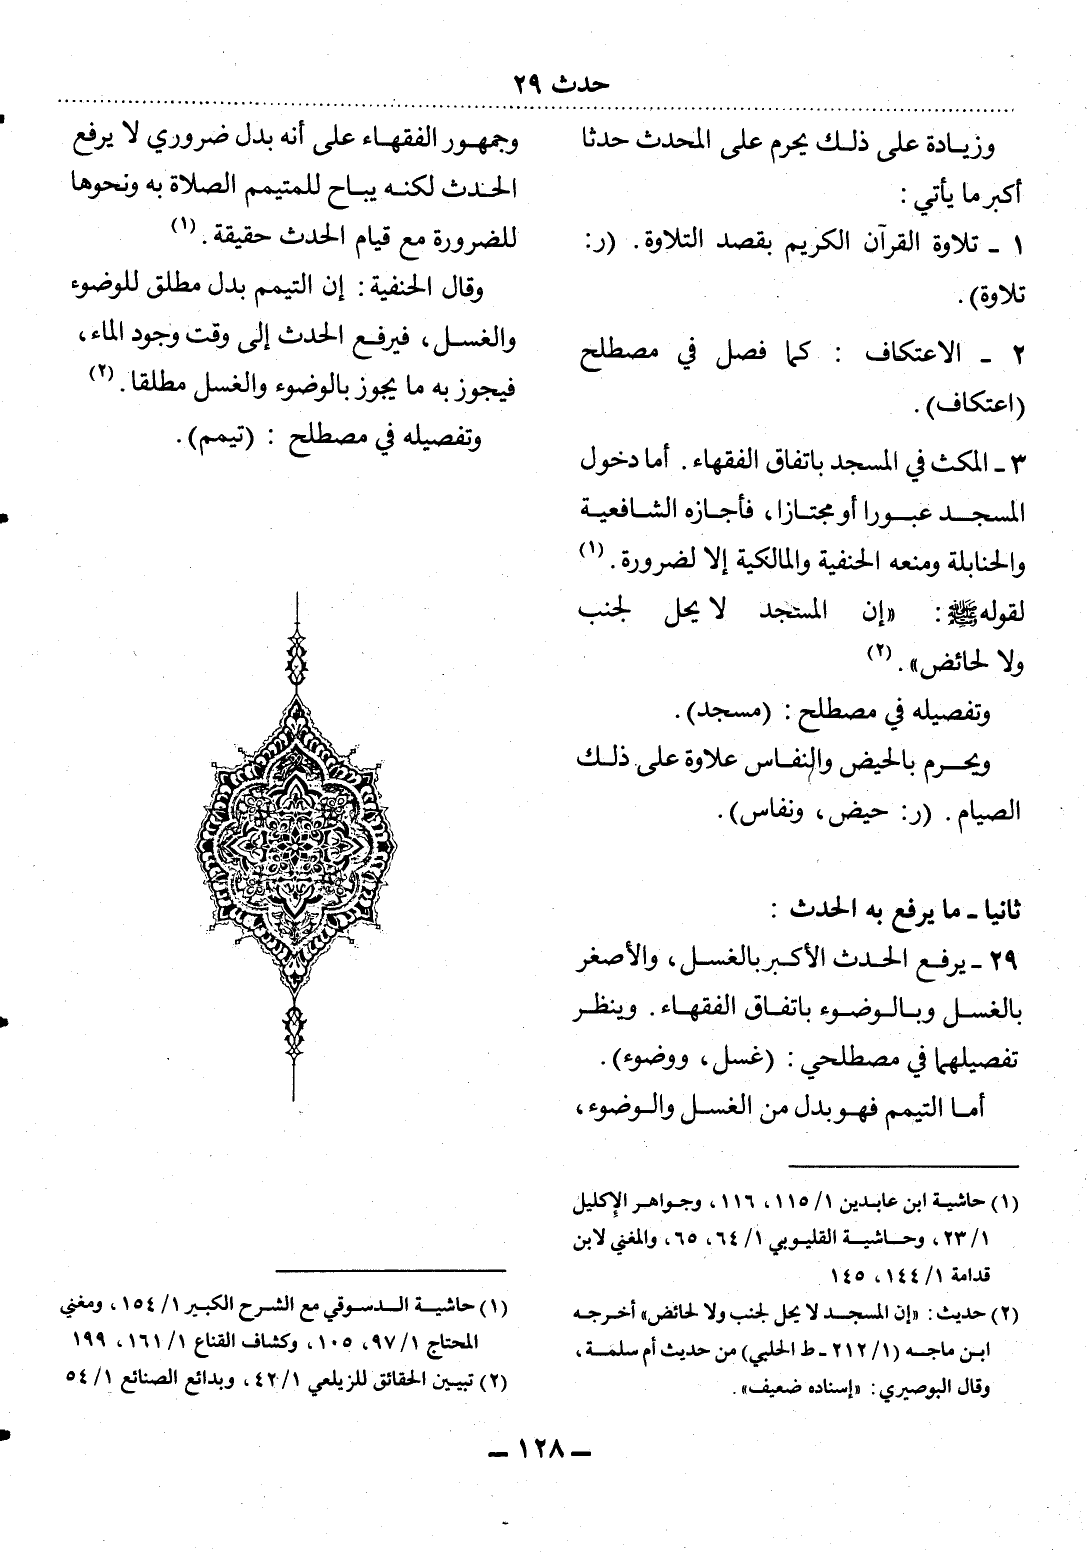 حدث ٢٩
وزيادة على ذلك يحرم على المحدث حدثا
أكبر ما يأتي :
١ ـ تلاوة القرآن الكريم بقصد التلاوة . (ر:
تلاوة) .
٢ ـ الاعتكاف : كما فصل في مصطلح
(اعتكاف) .
٣ ـ المكث في المسجد باتفاق الفقهاء . أما دخول
المسجد عبورا أو مجتازا ، فأجازه الشافعية
والحنابلة ومنعه الحنفية والمالكية إلا لضرورة . (١)
لقوله ﷺ : «إن المسجد لا يحل لجنب
ولا لحائض» . (٢)
وتفصيله في مصطلح : (مسجد) .
ويحرم بالحيض والنفاس علاوة على ذلك
الصيام . (ر: حيض ، ونفاس) .
ثانيا ـ ما يرفع به الحدث :
٢٩ ـ يرفع الحدث الأكبر بالغسل ، والأصغر
بالغسل وبالوضوء باتفاق الفقهاء . وينظر
تفصيلهما في مصطلحي : (غسل ، ووضوء) .
أما التيمم فهو بدل من الغسل والوضوء ،
(١) حاشية ابن عابدين ١/ ١١٥ ، ١١٦ ، وجواهر الإكليل
١/ ٢٣ ، وحاشية القليوبي ١/ ٦٤ ، ٦٥ ، والمغني لابن
قدامة ١/ ١٤٤ ، ١٤٥
(٢) حديث : «إن المسجد لا يحل لجنب ولا لحائض» أخرجه
ابن ماجه (١/ ٢١٢ ـ ط الحلبي) من حديث أم سلمة ،
وقال البوصيري : «إسناده ضعيف» .
وجمهور الفقهاء على أنه بدل ضروري لا يرفع
الحدث لكنه يباح للمتيمم الصلاة به ونحوها
للضرورة مع قيام الحدث حقيقة . (١)
وقال الحنفية : إن التيمم بدل مطلق للوضوء
والغسل ، فيرفع الحدث إلى وقت وجود الماء ،
فيجوز به ما يجوز بالوضوء والغسل مطلقا . (٢)
وتفصيله في مصطلح : (تيمم) .
(١) حاشية الدسوقي مع الشرح الكبير ١/ ١٥٤ ، ومغني
المحتاج ١/ ٩٧ ، ١٠٥ ، وكشاف القناع ١/ ١٦١ ، ١٩٩
(٢) تبيين الحقائق للزيلعي ١/ ٤٢ ، وبدائع الصنائع ١/ ٥٤
ـ ١٢٨ ـ